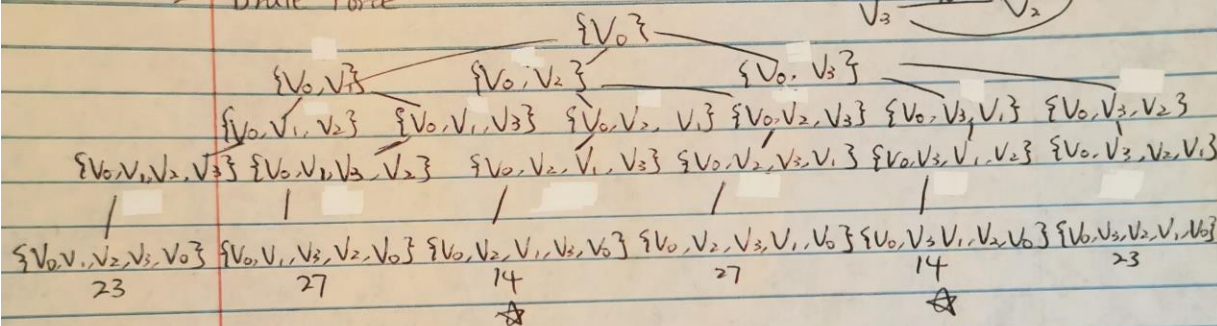 Brute Force
V3 V2
{V0}
{V0,V1} {V0,V2} {V0,V3}
{V0,V1,V2} {V0,V1,V3} {V0,V2,V1} {V0,V2,V3} {V0,V3,V1} {V0,V3,V2}
{V0,V1,V2,V3} {V0,V1,V3,V2} {V0,V2,V1,V3} {V0,V2,V3,V1} {V0,V3,V1,V2} {V0,V3,V2,V1}
{V0,V1,V2,V3,V0} {V0,V1,V3,V2,V0} {V0,V2,V1,V3,V0} {V0,V2,V3,V1,V0} {V0,V3,V1,V2,V0} {V0,V3,V2,V1,V0}
23 27 14 27 14 23